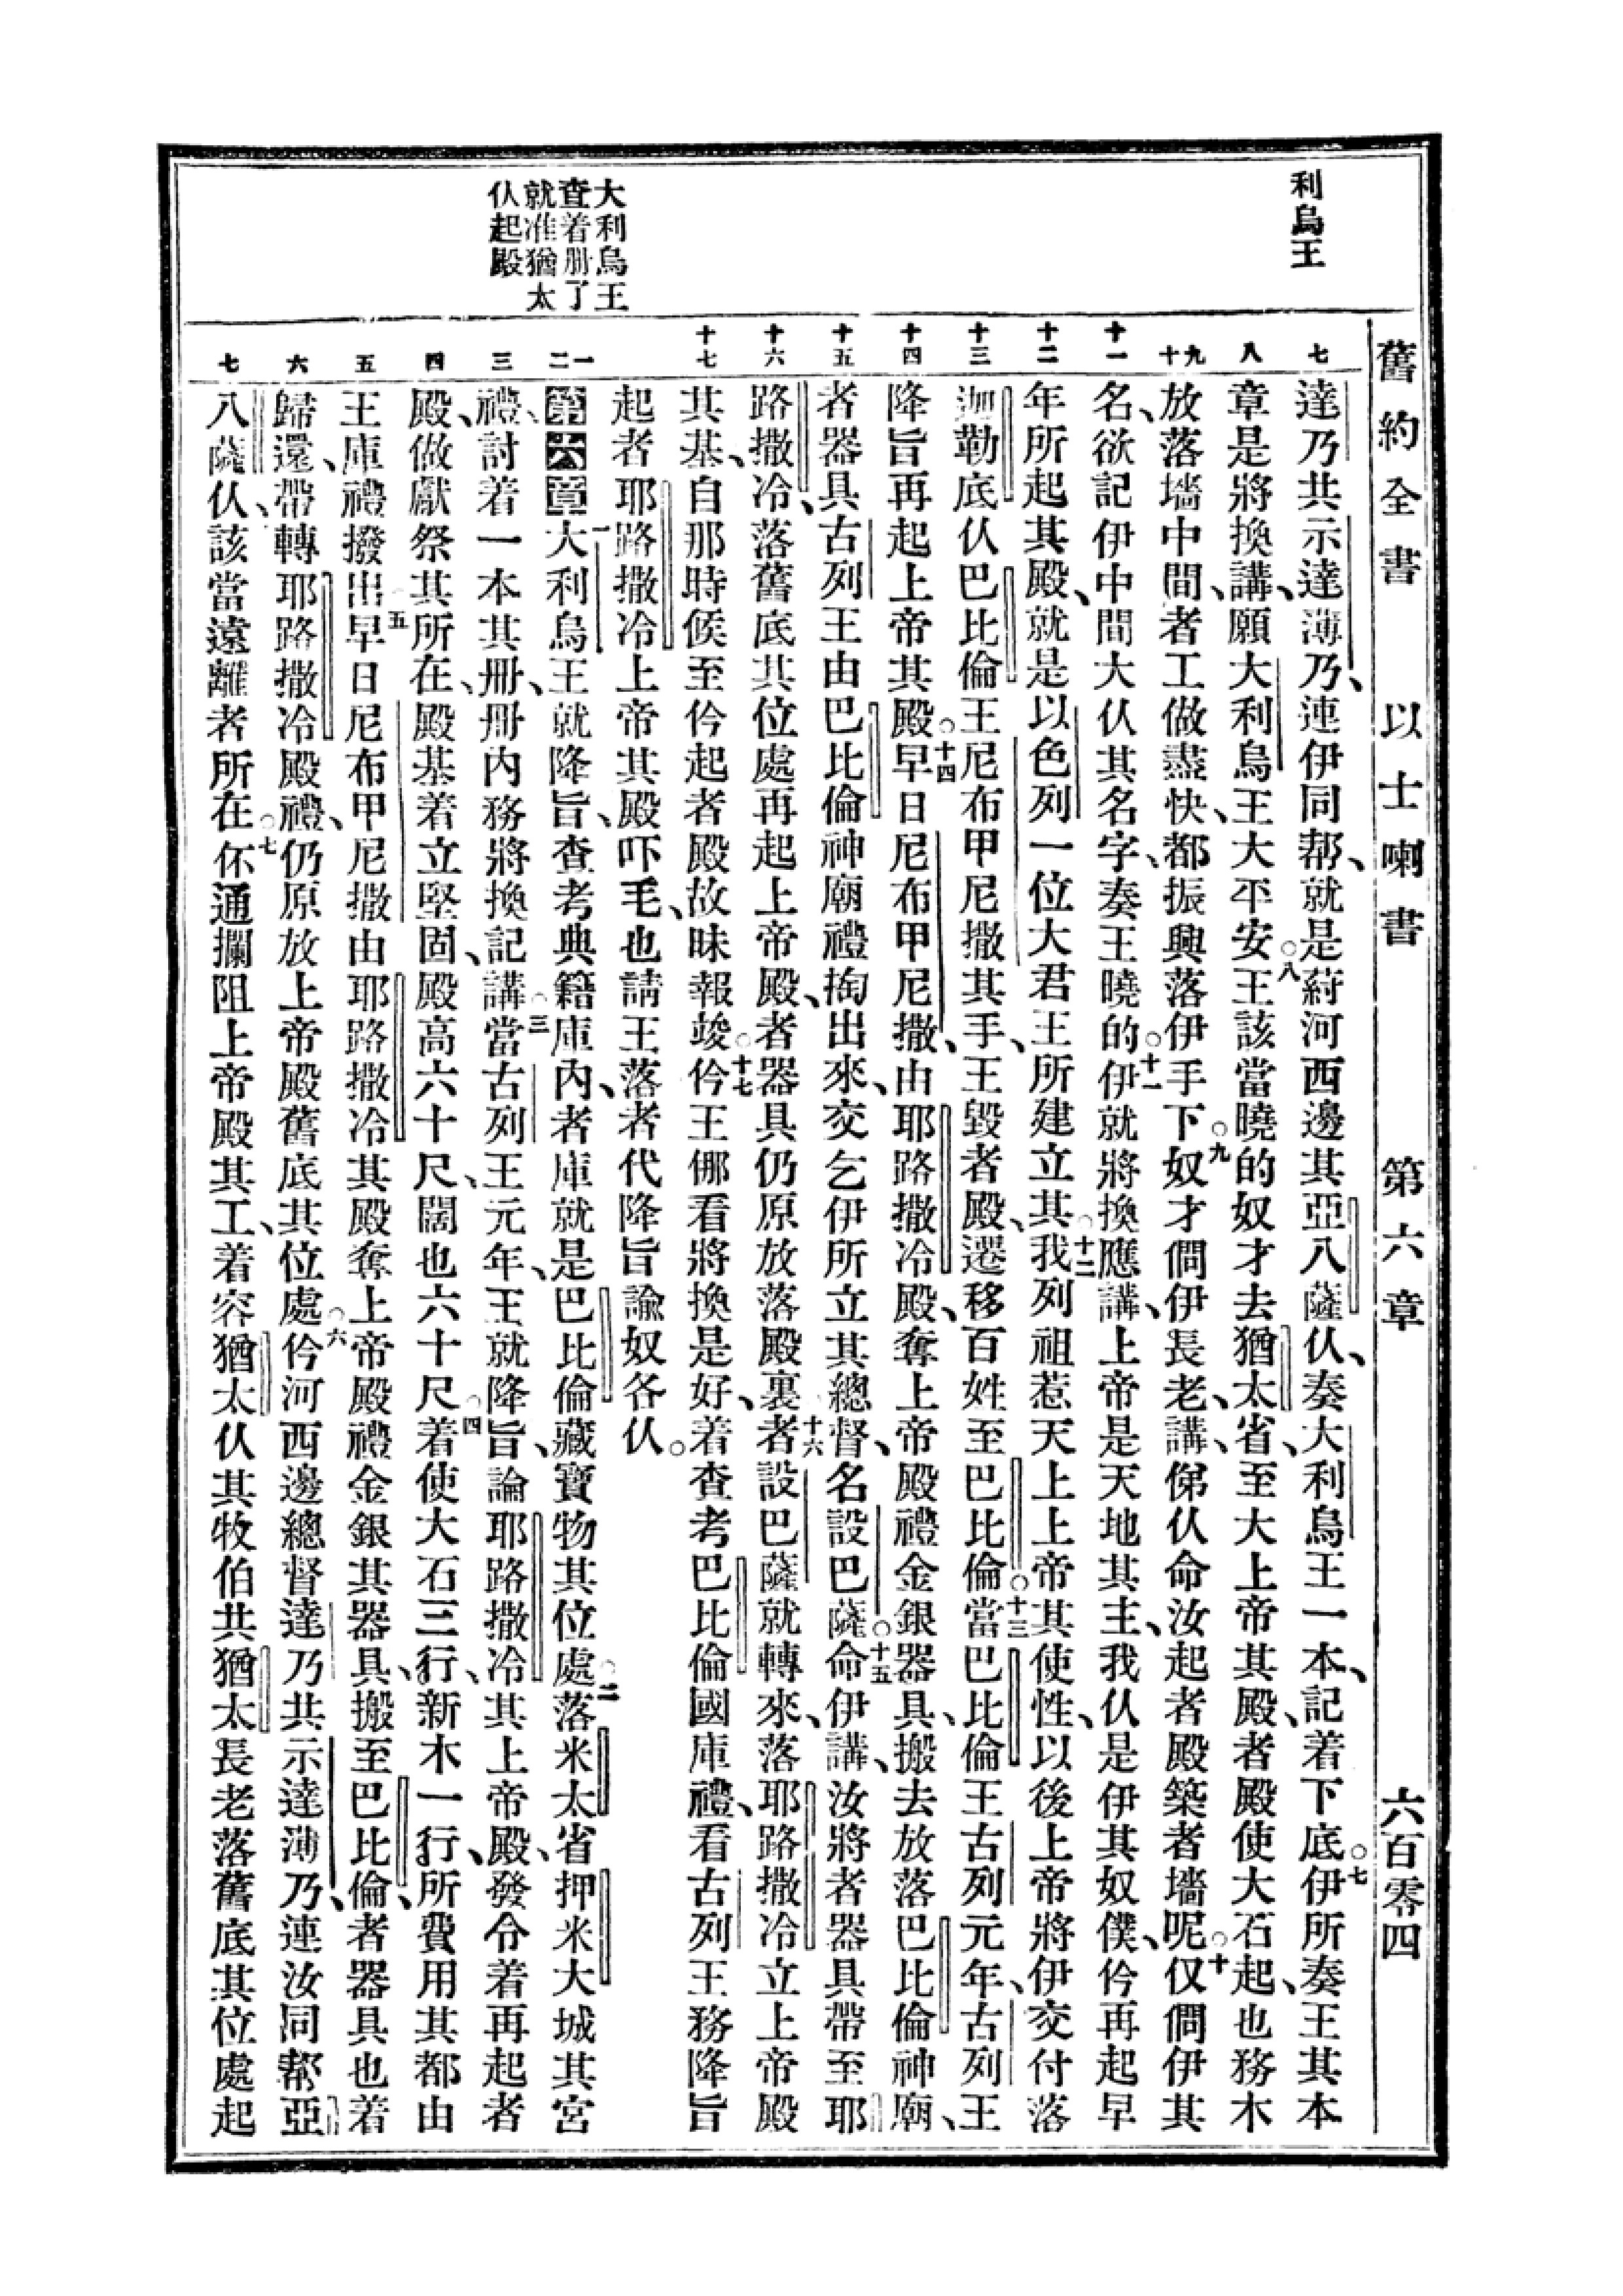 舊約全書 以士喇書 第六章 六百零四
利烏王
大利烏王
查着册了
就准猶太
伩起殿
七
達乃共示達薄乃、連伊同幇、就是葤河西邊其亞八薩伩、奏大利烏王一本、記着下底○七伊所奏王其本
八
章是將換講、願大利烏王大平安○八王該當曉的奴才去猶太省、至大上帝其殿、者殿使大石起、也務木
九 十
放落墻中間、者工做盡快、都振興落伊手下○九奴才僩伊長老、講、俤伩命汝起者殿築者墻呢○十仅僩伊其
十一
名、欲記伊中間大伩其名字、奏王曉的○十一伊就將換應講、上帝是天地其主、我伩是伊其奴僕、伶再起早
十二
年所起其殿、就是以色列一位大君王所建立其○十二我列祖惹天上上帝其使性、以後上帝將伊交付落
十三
迦勒底伩巴比倫王尼布甲尼撒其手、王毀者殿、遷移百姓至巴比倫○十三當巴比倫王古列元年、古列王
十四
降旨再起上帝其殿○十四早日尼布甲尼撒、由耶路撒冷殿、奪上帝殿禮金銀器具、搬去放落巴比倫神廟、
十五
者器具古列王由巴比倫神廟禮掏出來、交乞伊所立其總督、名設巴薩○十五命伊講、汝將者器具帶至耶
十六
路撒冷、落舊底其位處再起上帝殿、者器具仍原放落殿裏○十六者設巴薩就轉來、落耶路撒冷立上帝殿
十七
其基、自那時候至伶起者殿故昧報竣○十七伶王㑚看將換是好、着查考巴比倫國庫禮、看古列王務降旨
起者耶路撒冷上帝其殿吓毛、也請王落者代降旨諭奴各伩○
一 二
第六章 一大利烏王就降旨、查考典籍庫內、者庫就是巴比倫藏寶物其位處○二落米太省押米大城其宮
三
禮、討着一本其册、册內務將換記講○三當古列王元年、王就降旨、論耶路撒冷其上帝殿、發令着再起者
四
殿、做獻祭其所在、殿基着立堅固、殿高六十尺、闊也六十尺○四着使大石三行、新木一行、所費用其都由
五
王庫禮撥出○五早日尼布甲尼撒由耶路撒冷其殿奪上帝殿禮金銀其器具、搬至巴比倫、者器具也着
六
歸還、帶轉耶路撒冷殿禮、仍原放上帝殿舊底其位處○六伶河西邊總督達乃共示達薄乃、連汝同幇亞
七
八薩伩、該當遠離者所在○七伓通攔阻上帝殿其工、着容猶太伩其牧伯共猶太長老落舊底其位處起